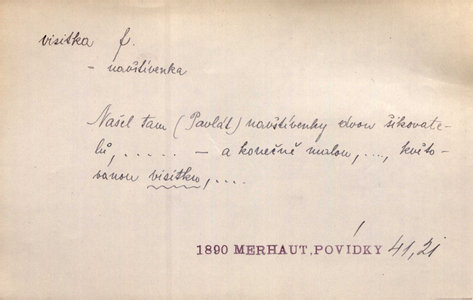 visitka f.
- navštívenka
Našel tam (Pavlát) navštívenky dvou šikovate-
lů, ..... - a konečně malou, ..., květo-
vanou visitku, ....
1890 MERHAUT, POVÍDKY 41, 21